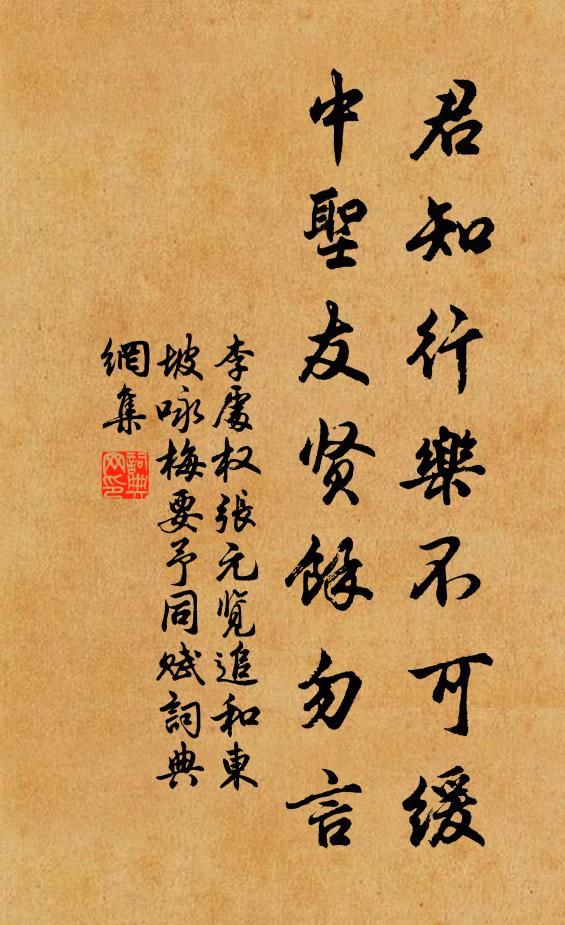 君知行樂不可缓
中聖友贤餘勿言
李處权張元览追和東
坡咏梅要予同赋詞典
網集
詞典
网印